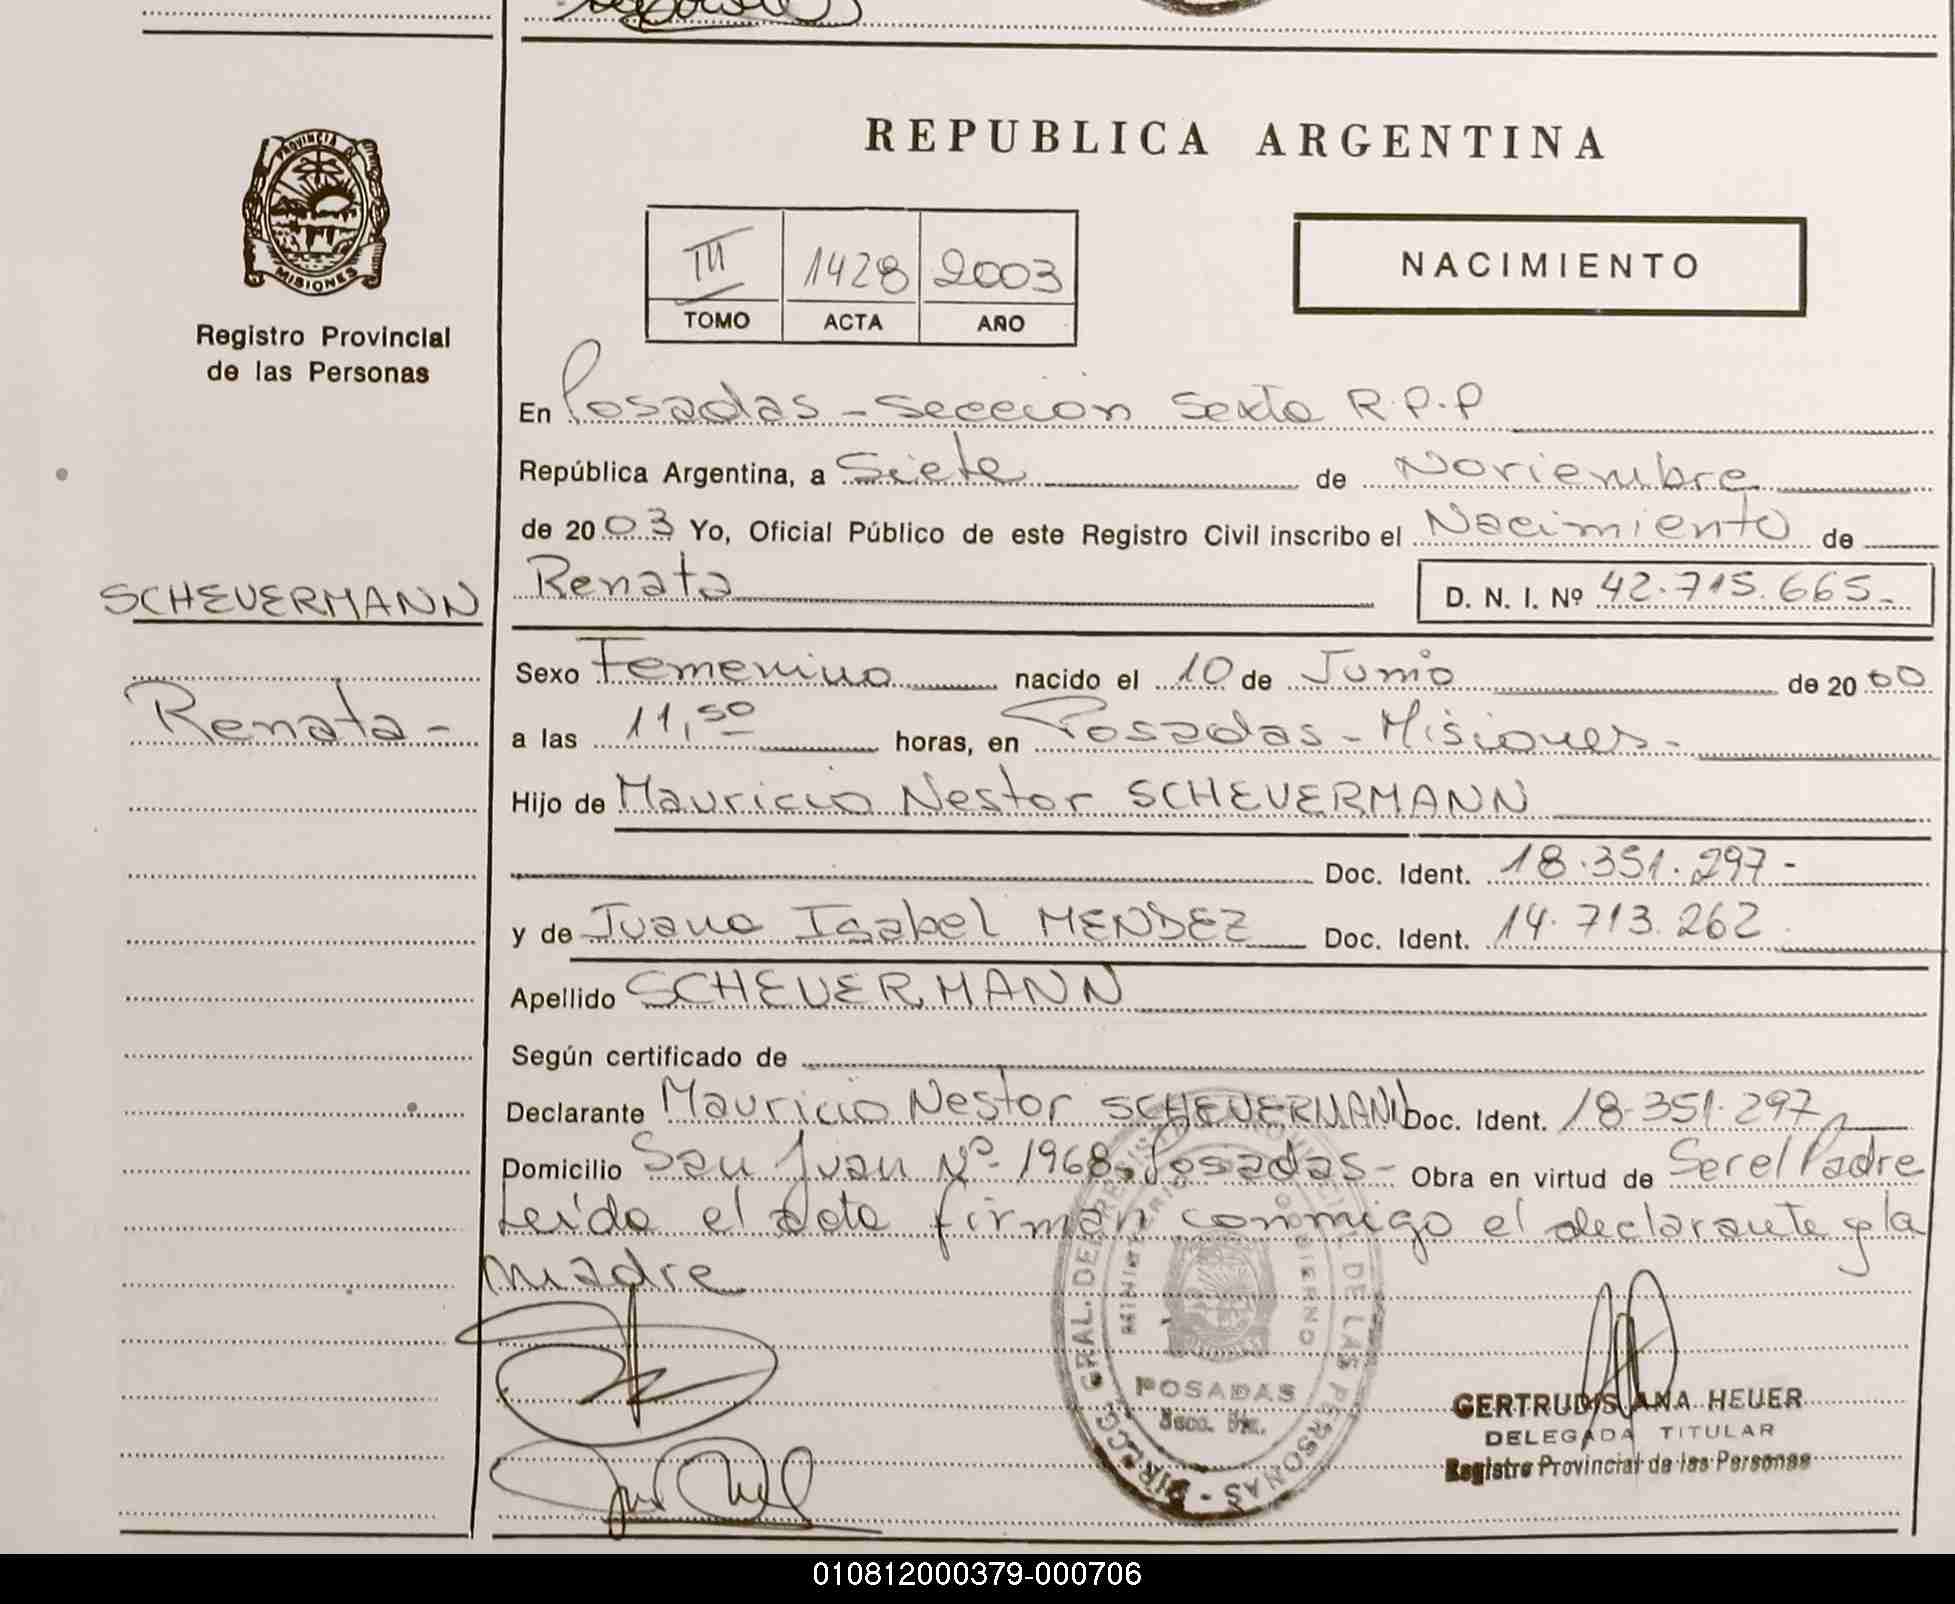 REPUBLICA ARGENTINA
PROVINCIA DE
MISIONES
Registro Provincial
de las Personas
III 1428 2003
TOMO ACTA AÑO
NACIMIENTO
En Posadas - Sección Sexta R.P.P
República Argentina, a Siete de Noviembre
de 2003 Yo, Oficial Público de este Registro Civil inscribo el Nacimiento de
SCHEUERMANN
Renata D. N. I. Nº 42.715.665-
Sexo Femenino nacido el 10 de Junio de 2000
Renata -
a las 11,50 horas, en Posadas - Misiones -
Hijo de Mauricio Nestor SCHEUERMANN
Doc. Ident. 18.351.297 -
y de Juana Isabel MENDEZ Doc. Ident. 14.713.262
Apellido SCHEUERMANN
Según certificado de
Declarante Mauricio Nestor SCHEUERMANN Doc. Ident. 18.351.297
Domicilio San Juan Nº 1968, Posadas - Obra en virtud de Ser el Padre
Leída el acta firman conmigo el declarante y la
madre
POSADAS
GERTRUDIS ANA HEUER
DELEGADA TITULAR
Registro Provincial de las Personas
010812000379-000706